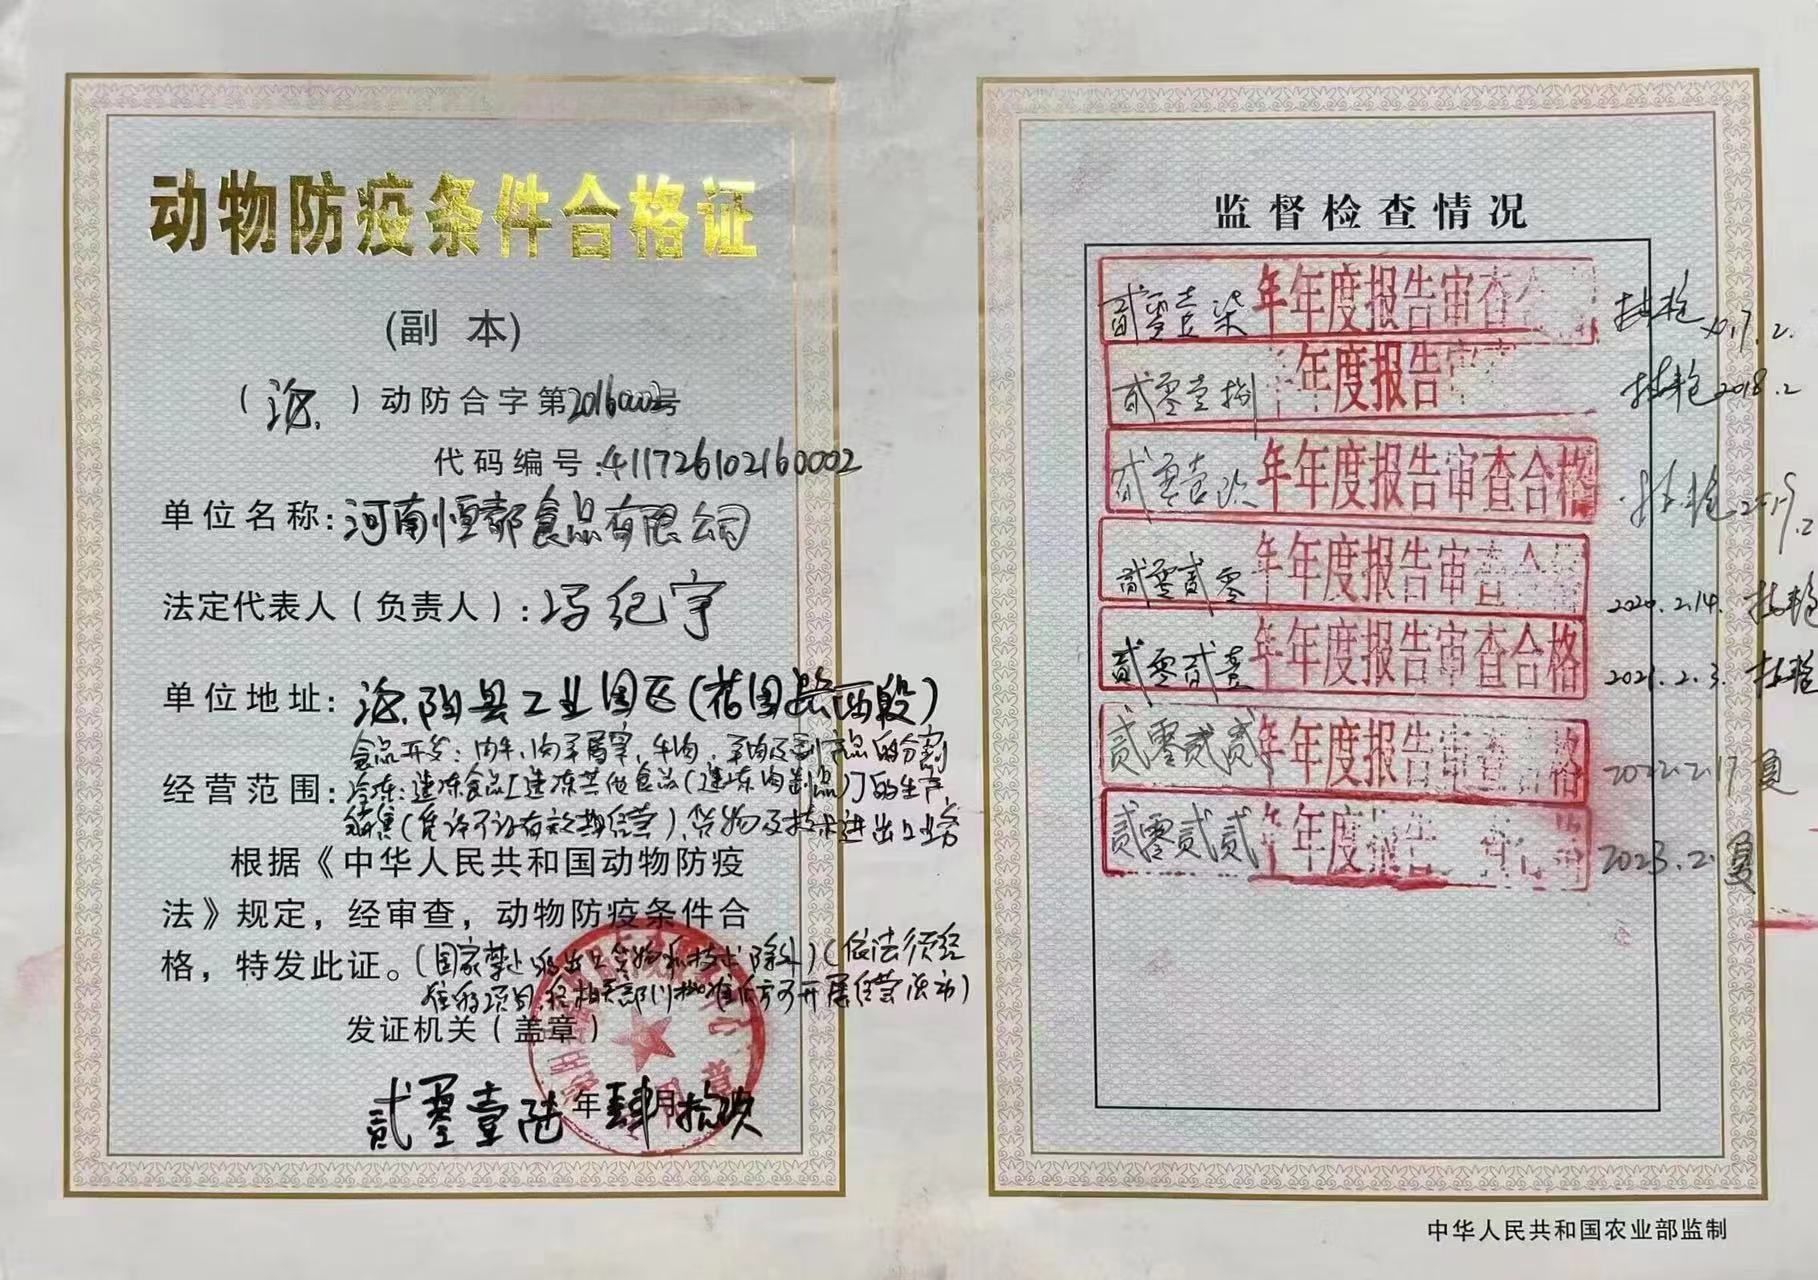 动物防疫条件合格证
(副 本)
（泌）动防合字第20160002号
代码编号:411726102160002
单位名称:河南恒都食品有限公司
法定代表人（负责人）:冯纪宇
单位地址:泌阳县工业园区(花园路西段)
食品开发：肉牛、肉羊屠宰，牛肉、羊肉及副产品的分割
经营范围:冷冻：速冻食品[速冻其他食品(速冻肉制品)]的生产
销售(凭许可证有效期经营)、货物及技术进出口业务
根据《中华人民共和国动物防疫
法》规定，经审查，动物防疫条件合
格，特发此证。
(国家禁止的进出口货物和技术除外)(依法须经
批准的项目，经相关部门批准后方可开展经营活动)
发证机关（盖章）
贰零壹陆年肆月拾玖
监督检查情况
贰零壹柒年年度报告审查合 2017.2.
贰零壹捌年年度报告审查 2018.2
贰零壹玖年年度报告审查合格 2019.2
贰零贰零年年度报告审查合格 2020.2.14.
贰零贰壹年年度报告审查合格 2021.2.3.
贰零贰贰年年度报告审查合格 2022.2.17 夏
贰零贰贰年年度报告审查合格 2023.2. 夏
中华人民共和国农业部监制